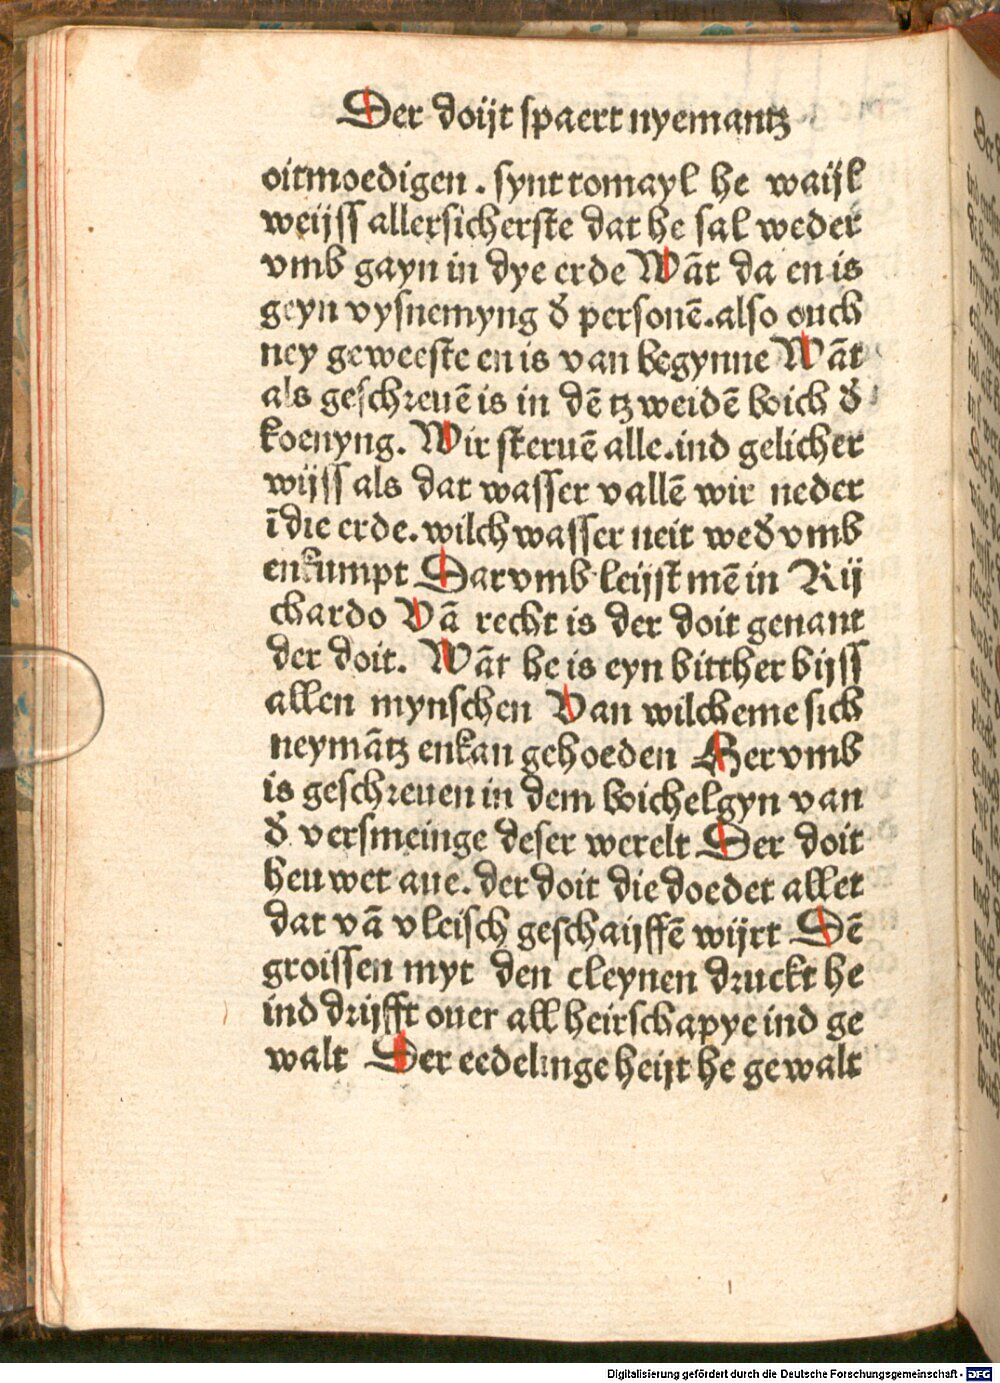 Der doijt spaert nyemantz
oitmoedigen . synt tomayl he waijl
weijss allersicherste dat he sal weder
vmb gayn in dye erde Wāt da en is
geyn vysnemyng d̄ personē.also ouch
ney geweeste en is van begynne Wāt
als geschreuē is in dē tzweidē boich d̄
koenyng. Wir steruē alle.ind gelicher
wijss als dat wasser vallē wir neder
ī die erde.wilch wasser neit wed̄ vmb
enkumpt Dar vmb leijst mē in Rij
chardo Vā recht is der doit genant
der doit. Wāt he is eyn bitther bijss
allen mynschen Van wilcheme sich
neymātz enkan gehoeden Her vmb
is geschreuen in dem boichelgyn van
d̄ versmeinge deser werelt Der doit
heuwet aue.der doit die doedet allet
dat vā vleisch geschaijffē wijrt Dē
groissen myt den cleynen druckt he
ind drijfft ouer all heirschapye ind ge
walt Der eedelinge heijt he gewalt
Digitalisierung gefördert durch die Deutsche Forschungsgemeinschaft - DFG